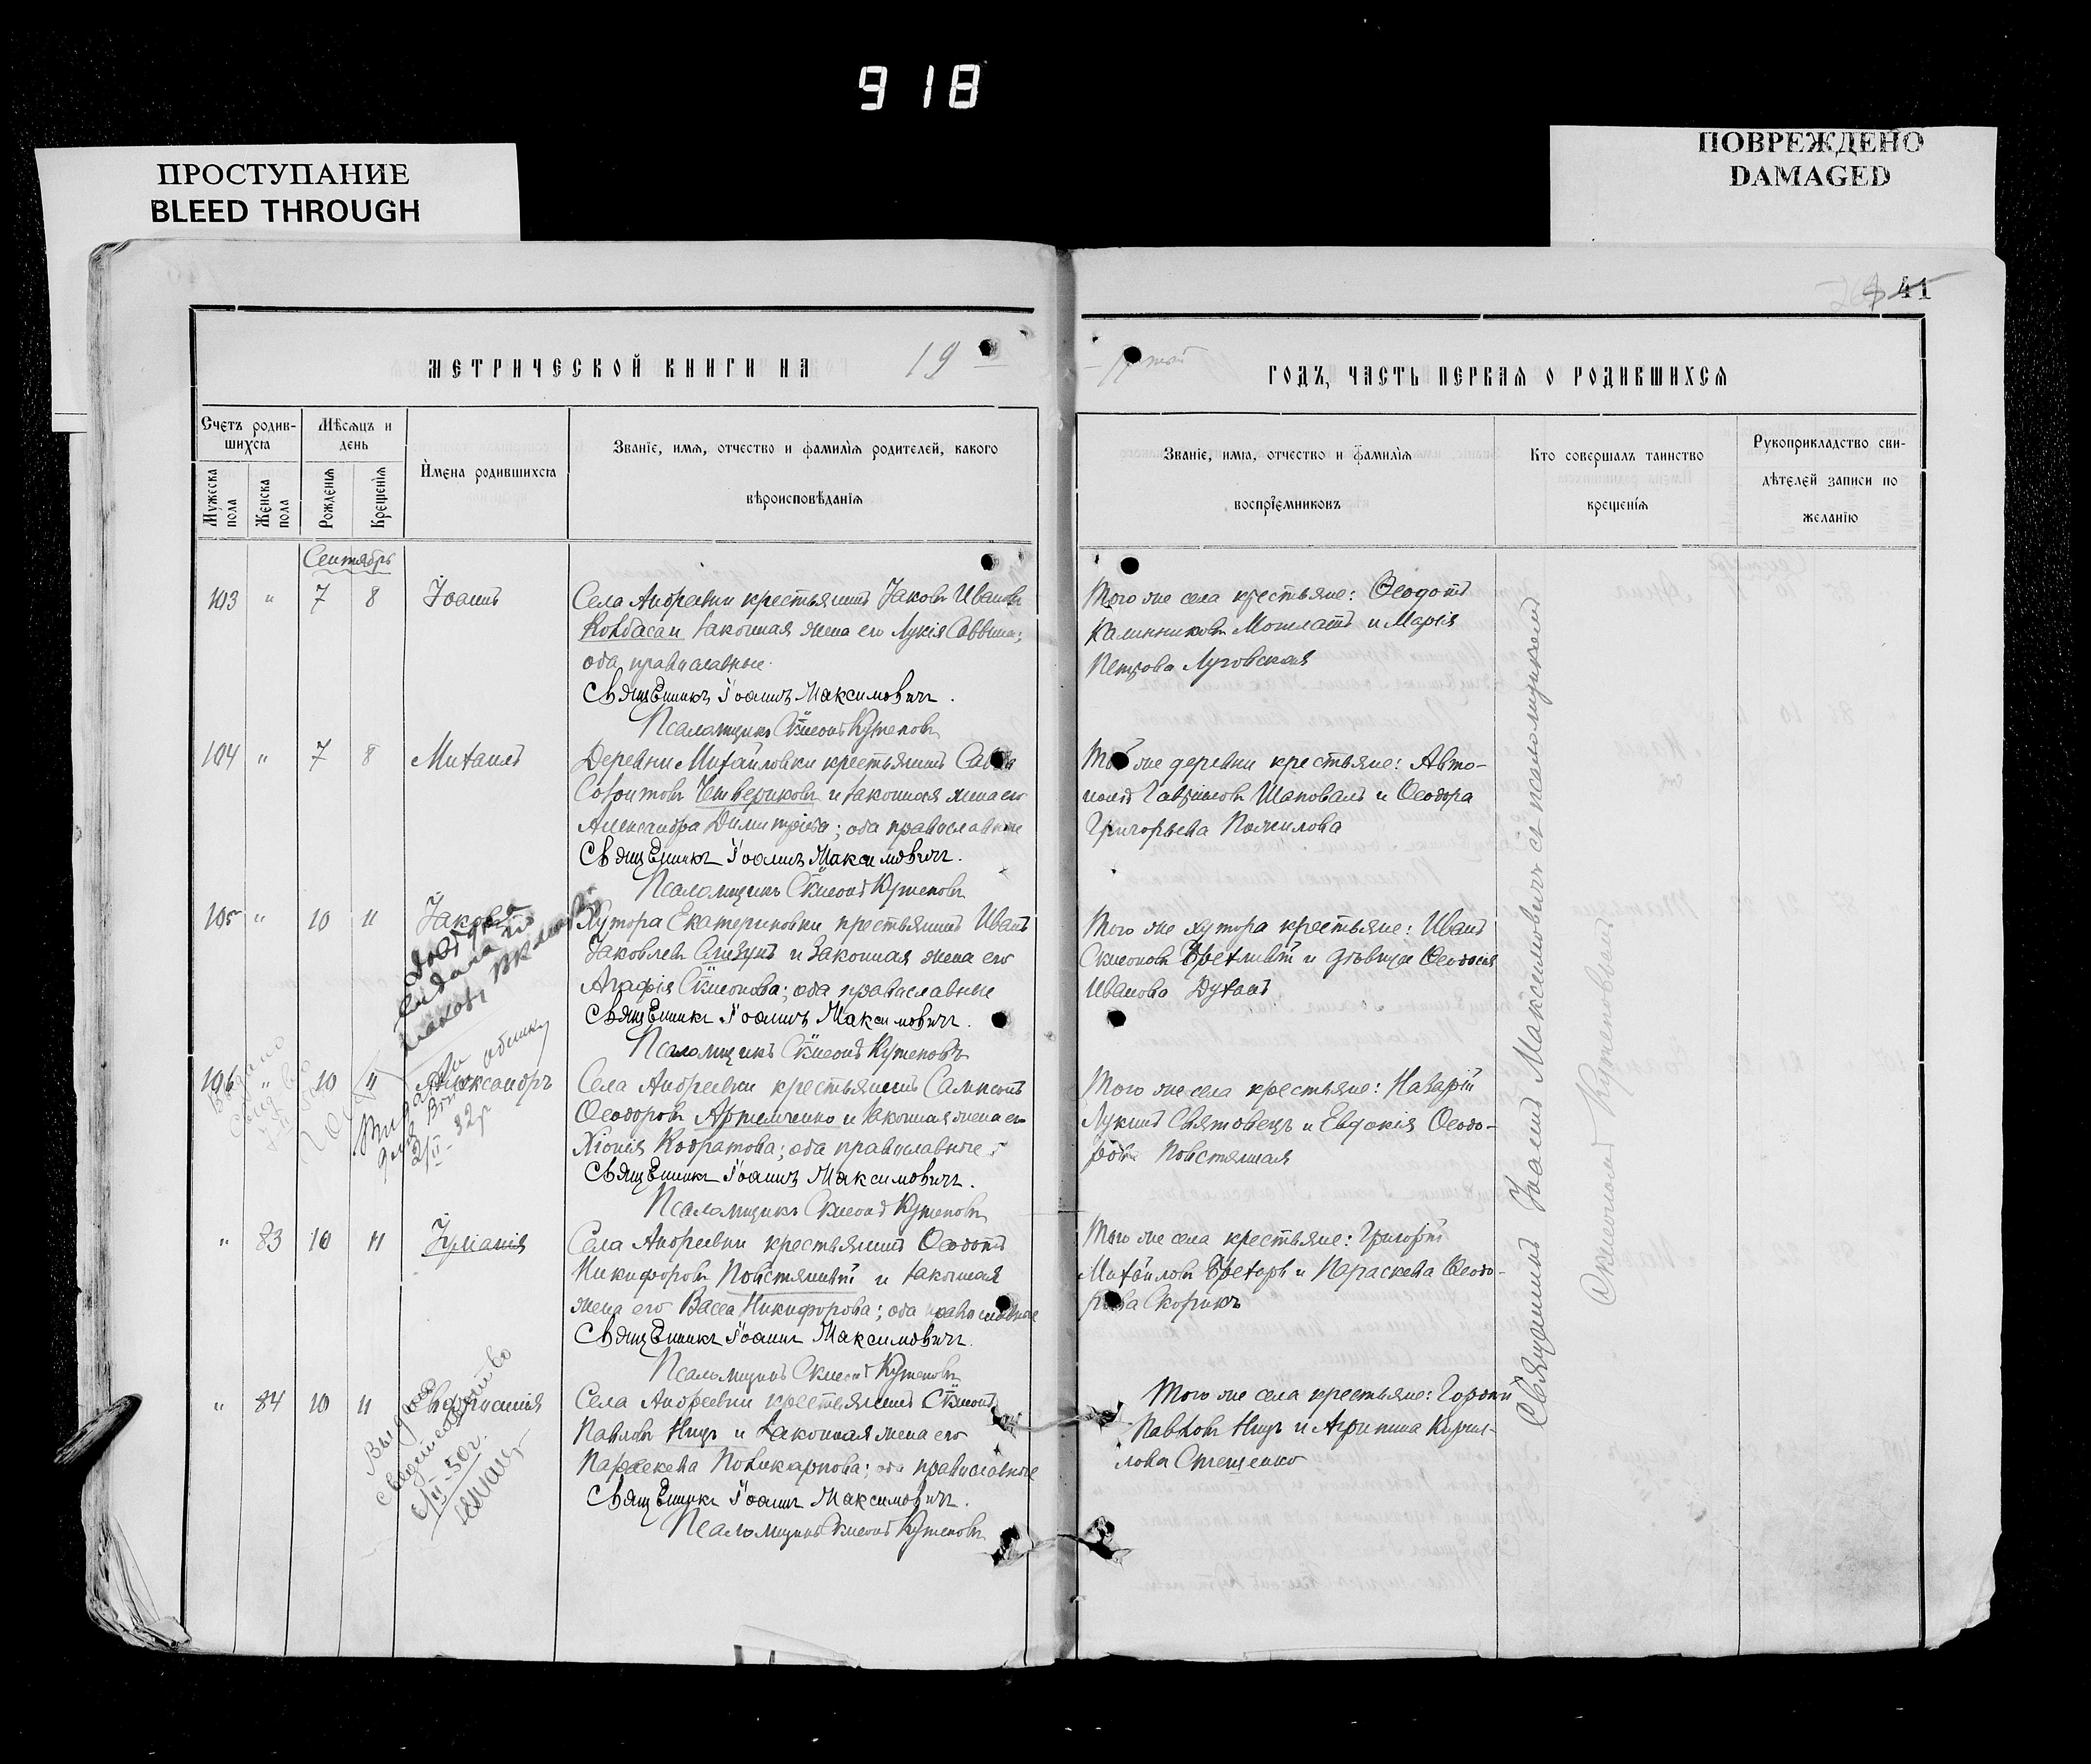 918
ПРОСТУПАНИЕ
BLEED THROUGH
ПОВРЕЖДЕНО
DAMAGED
41
МЕТРИЧЕСКОЙ КНИГИ НА 19
ГОДЪ, ЧАСТЬ ПЕРВАЯ О РОДИВШИХСЯ
Счетъ родив-
шихся
Мужеска пола
Женска пола
Мѣсяцъ и
день
Рожденія
Крещенія
Имена родившихся
Званіе, имя, отчество и фамилія родителей, какого
вѣроисповѣданія
Званіе, имя, отчество и фамилія
воспріемниковъ
Кто совершалъ таинство
крещенія
Рукоприкладство сви-
дѣтелей записи по
желанію
Сентябрь
103 " 7 8 Іоаннъ
Села Андреевки крестьянинъ Іаковъ Ивановъ
Колбаса и законная жена его Лукія Саввина;
оба православные.
Священникъ Іоаннъ Максимовичъ.
Псаломщикъ Сѵмеонъ Кутеповъ
Того же села крестьяне: Ѳеодотъ
Калинниковъ и Марія
Петрова Луговская
104 " 7 8 Михаилъ
Деревни Михайловки крестьянинъ Савва
Созонтовъ Четвериковъ и законная жена его
Александра Димитріева; оба православные
Священникъ Іоаннъ Максимовичъ.
Псаломщикъ Сѵмеонъ Кутеповъ
Той же деревни крестьяне: Авто-
номъ Гавріиловъ Шаповалъ и Ѳеодора
Григорьева
105 " 10 11 Іаковъ
Хутора Екатериновки крестьянинъ Иванъ
Іаковлевъ Слизунъ и законная жена его
Агафія Сѵмеонова; оба православные
Священникъ Іоаннъ Максимовичъ.
Псаломщикъ Сѵмеонъ Кутеповъ
Того же хутора крестьяне: Иванъ
Сѵмеоновъ и дѣвица Ѳеодосія
Иванова Духанъ
106 " 10 11 Александръ
Села Андреевки крестьянинъ Сампсонъ
Ѳеодоровъ Артемченко и законная жена его
Хіонія Кодратова; оба православные.
Священникъ Іоаннъ Максимовичъ.
Псаломщикъ Сѵмеонъ Кутеповъ
Того же села крестьяне: Назарій
Лукинъ Святовецъ и Евдокія Ѳеодо-
рова Повстяная
" 83 10 11 Іуліанія
Села Андреевки крестьянинъ Ѳеодотъ
Никифоровъ Повстяный и законная
жена его Васса Никифорова; оба православные
Священникъ Іоаннъ Максимовичъ.
Псаломщикъ Сѵмеонъ Кутеповъ
Того же села крестьяне: Григорій
Михайловъ и Параскева Ѳеодо-
рова Скорикъ
" 84 10 11 Евфросинія
Выдано
свидетельство
Села Андреевки крестьянинъ Сѵмеонъ
Павловъ Ницъ и законная жена его
Параскева Поликарпова; оба православные
Священникъ Іоаннъ Максимовичъ.
Псаломщикъ Сѵмеонъ Кутеповъ
Того же села крестьяне: Гордій
Павловъ Ницъ и Агрипина Кирил-
лова Стеценко
Священникъ Іоаннъ Максимовичъ съ псаломщикомъ
Сѵмеономъ Кутеповымъ